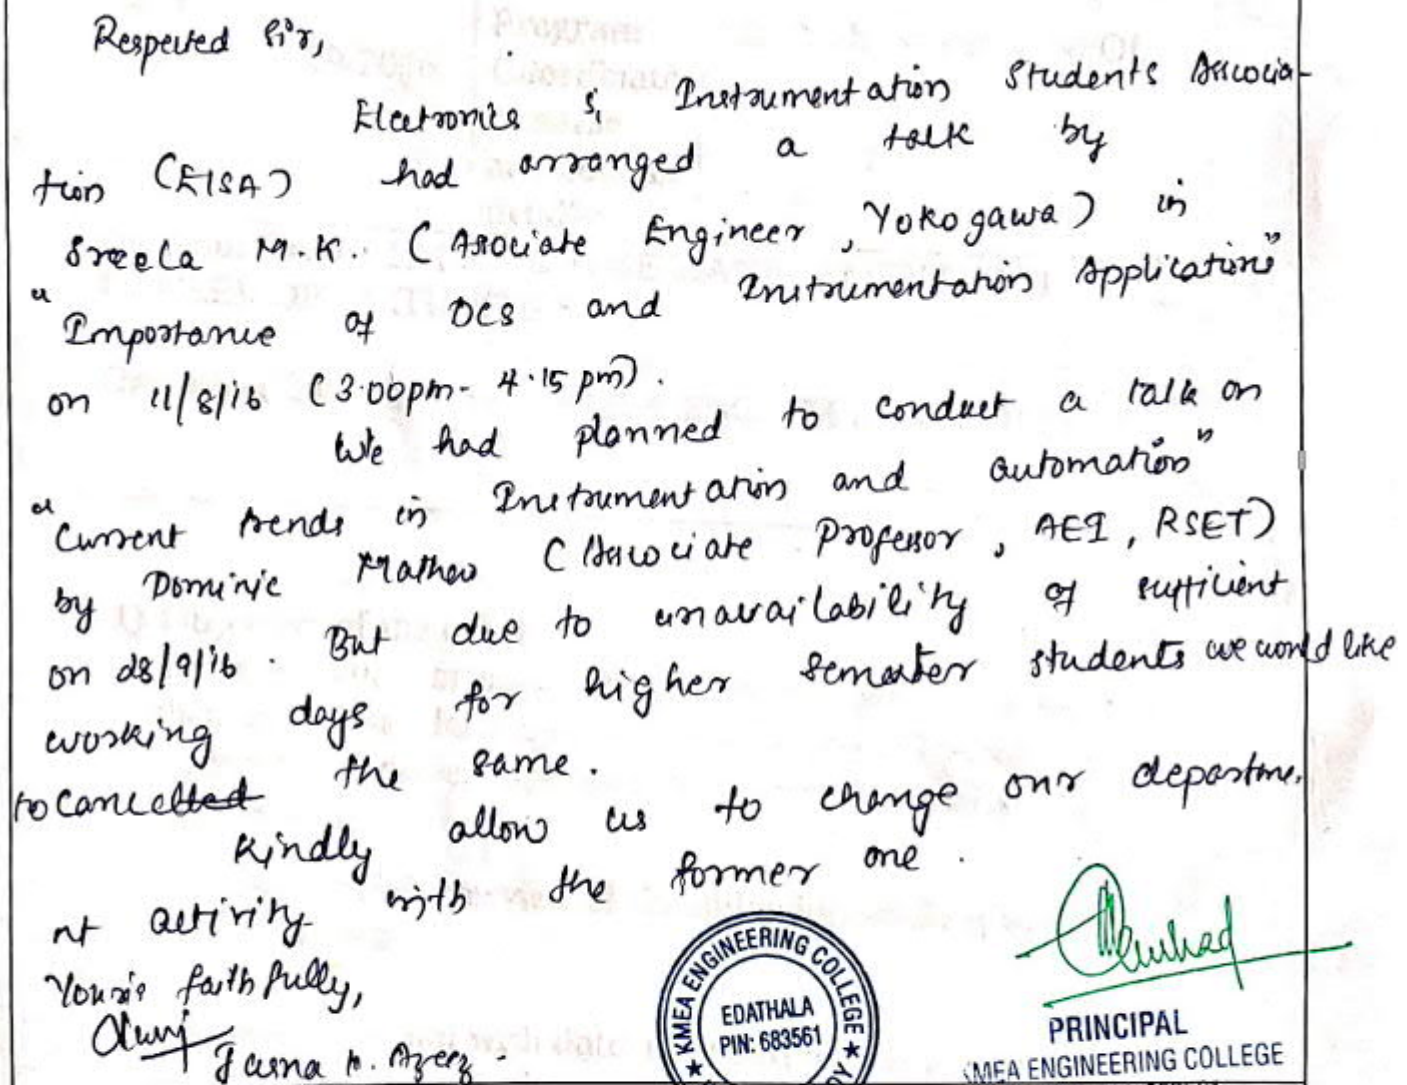 Respected Sir,
Electronics & Instrumentation Students Associa-
tion (EISA) had arranged a talk by
Sreela M.K. (Asociate Engineer, Yokogawa) in
"Importance of DCS and Instrumentation Applications"
on 11/8/16 (3.00pm - 4.15 pm).
We had planned to conduct a talk on
"Current trends in Instrumentation and automation"
by Dominic Mathew (Associate Professor, AEI, RSET)
on 28/9/16. But due to unavailability of sufficient
working days for higher semester students we would like
to cancelled the same.
Kindly allow us to change our departme.
nt activity with the former one.
Yours faithfully,
Azeez
KMEA ENGINEERING COLLEGE
EDATHALA
PIN: 683561
PRINCIPAL
KMEA ENGINEERING COLLEGE